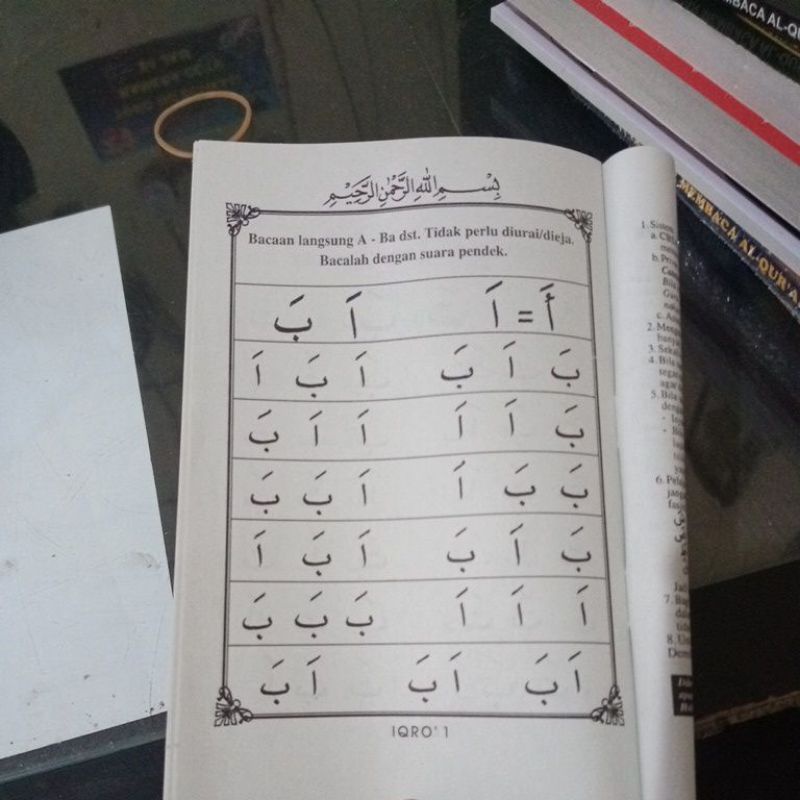 بِسْمِ اللهِ الرَّحْمٰنِ الرَّحِيْمِ
Bacaan langsung A - Ba dst. Tidak perlu diurai/dieja.
Bacalah dengan suara pendek.
أَ = اَ اَ بَ
بَ اَ بَ اَ بَ اَ
بَ اَ اَ اَ اَ بَ
بَ بَ اَ اَ بَ بَ
بَ اَ بَ اَ بَ اَ
اَ اَ اَ بَ بَ بَ
اَ بَ اَ بَ اَ بَ
IQRO' 1
MEMBACA AL-QUR'A